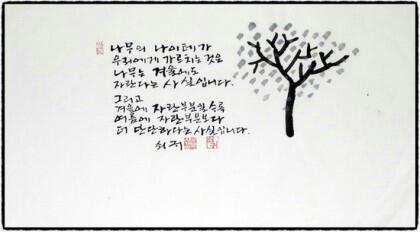 나무의 나이테가
우리에게 가르치는것은
나무는 겨울에도
자란다는 사실입니다.
그리고
겨울에 자란부분일수록
여름에 자란부분보다
더 단단하다는사실입니다.
쇠귀